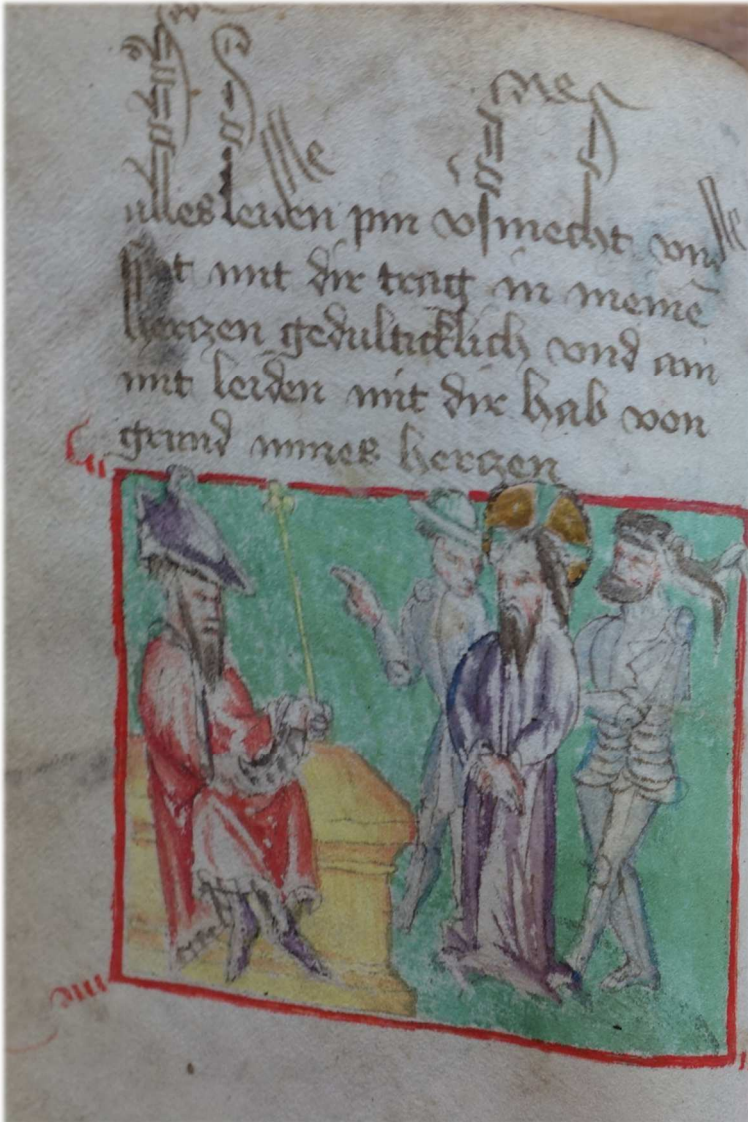 alles leiden pin vſmecht vnd
mit dir trag in meinē
herczen gedulticklich vnd ain
mit leiden mit dir hab von
grund mines herczen